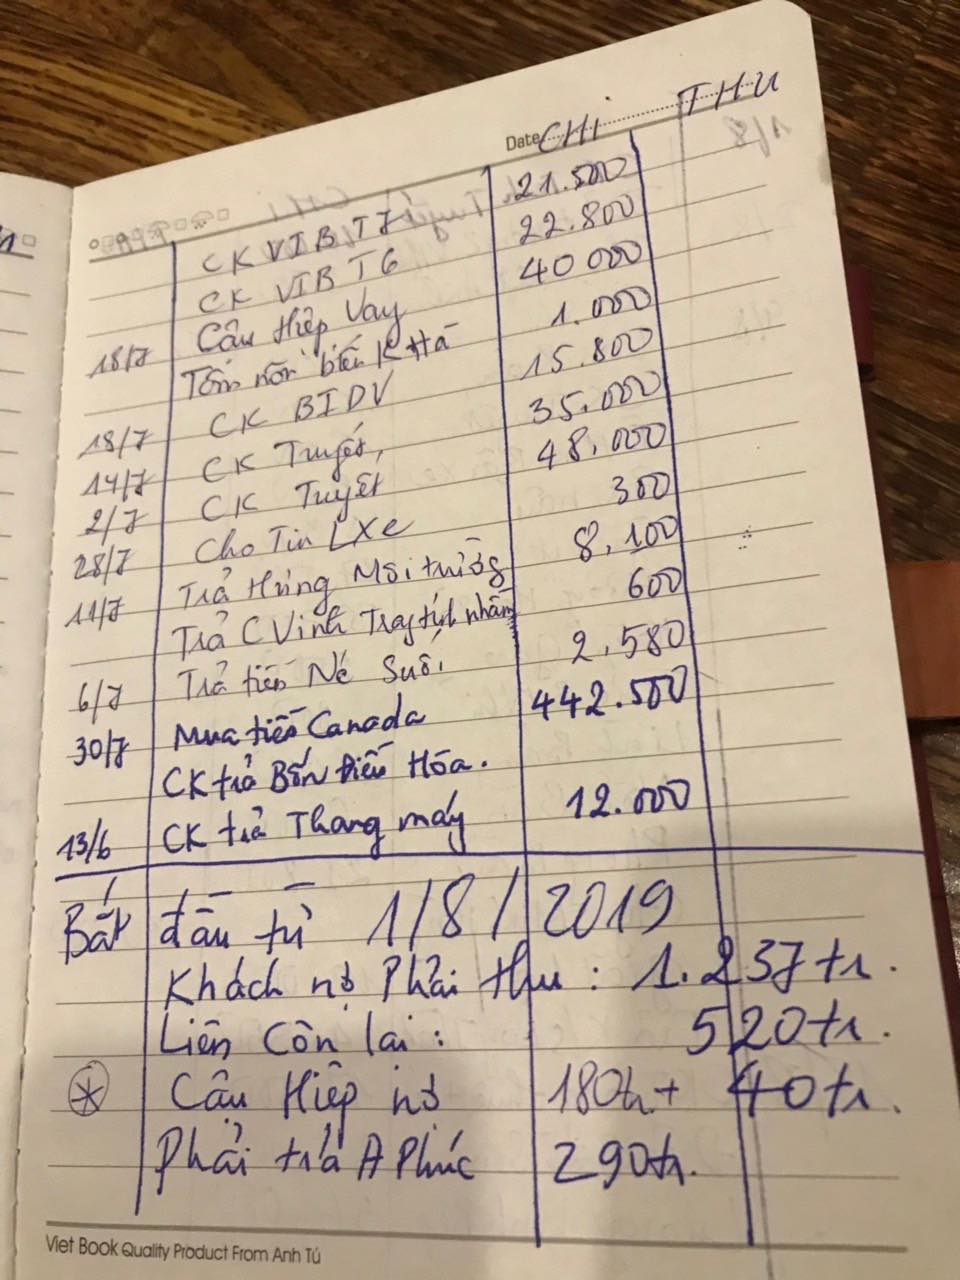 Date CHI THU
CK VIB T7 21.500
CK VIB T6 22.800
18/7 Cậu Hiệp Vay 40 000
1.000
18/7 CK BIDV 15.800
14/7 CK Tuyết, 35.000
2/7 CK Tuyết 48.000
28/7 Cho Tin LXe 300
11/7 Trả Hùng Môi trường 8.100
Trả C Vinh 600
6/7 Trả tiền Né Suối 2.580
30/7 Mua tiền Canada 442.500
CK trả Bồn Điều Hòa.
13/6 CK trả Thang máy 12.000
Bắt đầu từ 1/8/2019
Khách nợ Phải thu : 1.237tr.
Liên Còn lại : 520tr.
Cậu Hiệp nợ 180tr + 40tr.
Phải trả A Phúc 290tr.
Viet Book Quality Product From Anh Tú